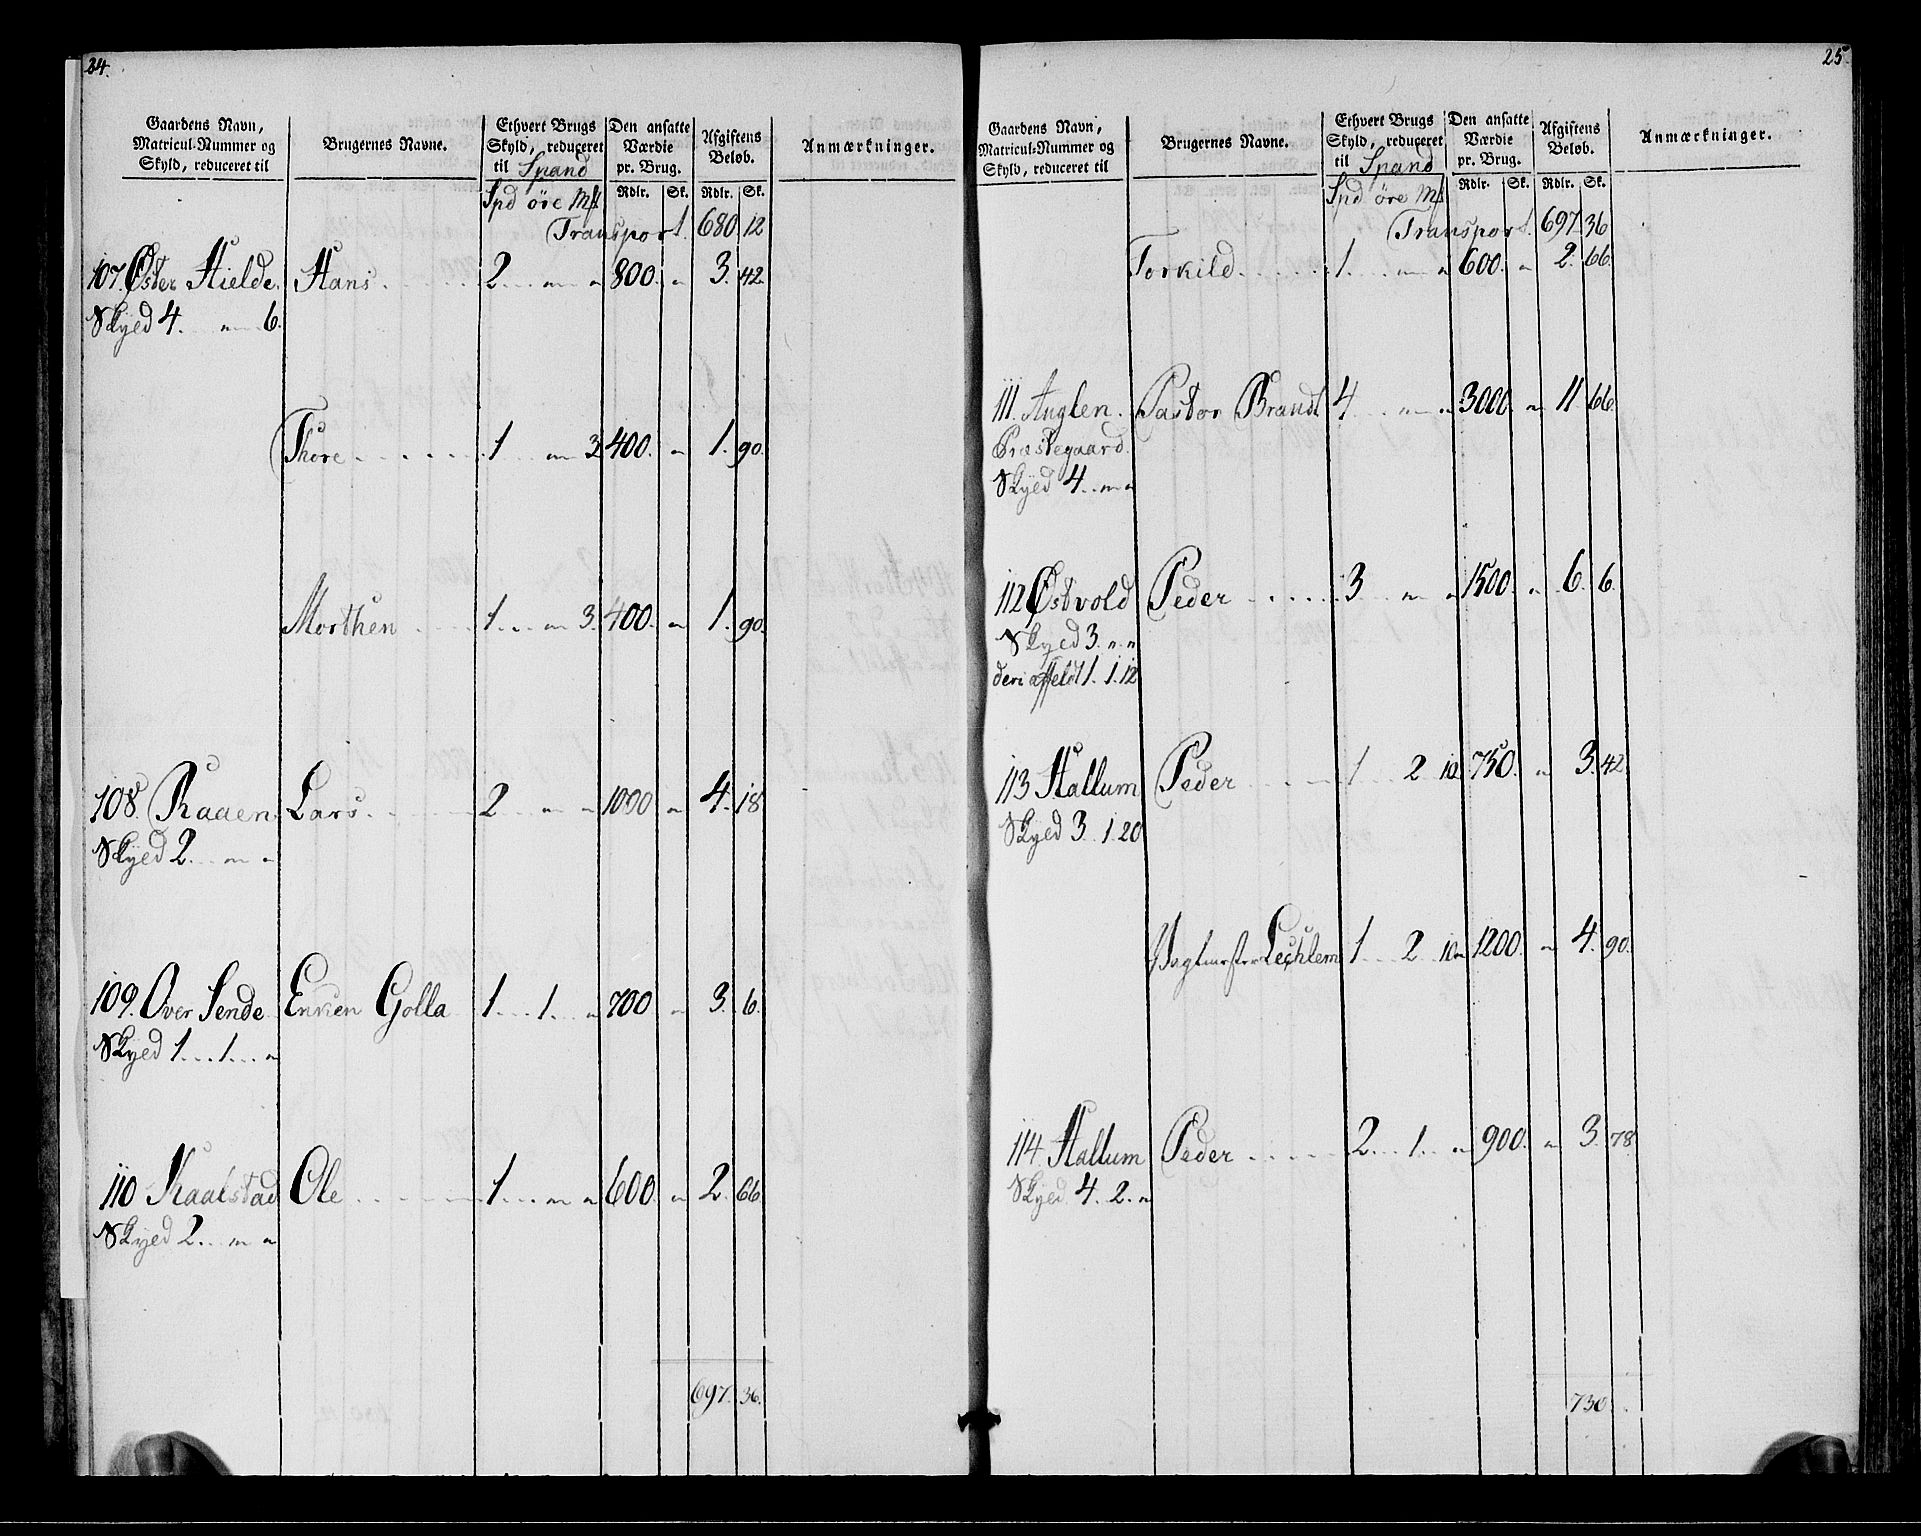 24.
Gaardens Navn, Matricul-Nummer og Skyld, reduceret til
Brugernes Navne.
Ethvert Brugs Skyld, reduceret til Spand
Den ansatte Værdie pr. Brug.
Afgiftens Beløb.
Anmærkninger.
Spd öre Mk Rdlr. Sk. Rdlr. Sk.
Transport. 680 12
107. Øster Hielde. Hans 2. " " 800. " 3. 42.
Skyld 4. " 6.
Thore 1 " 3 400. " 1. 90.
Morthen 1 " 3. 400. " 1. 90.
108. Raaen Lars. 2 " " 1000 " 4. 18
Skyld 2. " "
109. Over Sende Enken Golla 1. 1. " 700 " 3. 6.
Skyld 1. 1. "
110 Kaalstad Ole 1. " " 600. " 2. 66.
Skyld 2. " "
697. 36.
25.
Gaardens Navn, Matricul-Nummer og Skyld, reduceret til
Brugernes Navne.
Ethvert Brugs Skyld, reduceret til Spand
Den ansatte Værdie pr. Brug.
Afgiftens Beløb.
Anmærkninger.
Spd öre Mk Rdlr. Sk. Rdlr. Sk.
Transport. 697. 36
Torkild 1. " " 600. " 2. 66.
111. Auglen. Pastor Brandt 4 " " 3000. " 11. 66.
Præstegaard.
Skyld 4. " "
112 Østvold Peder 3 " " 1500. " 6. 6.
Skyld 3. " "
deri affeldt 1. 1. 12
113 Hallum Peder 1 2 10 750. " 3. 42.
Skyld 3. 1. 20
Vagtmester Lechlem 1 2 10 1200 " 4. 90.
114. Hallum Peder 2. 1. " 900. " 3. 78
Skyld 4. 2. "
730.